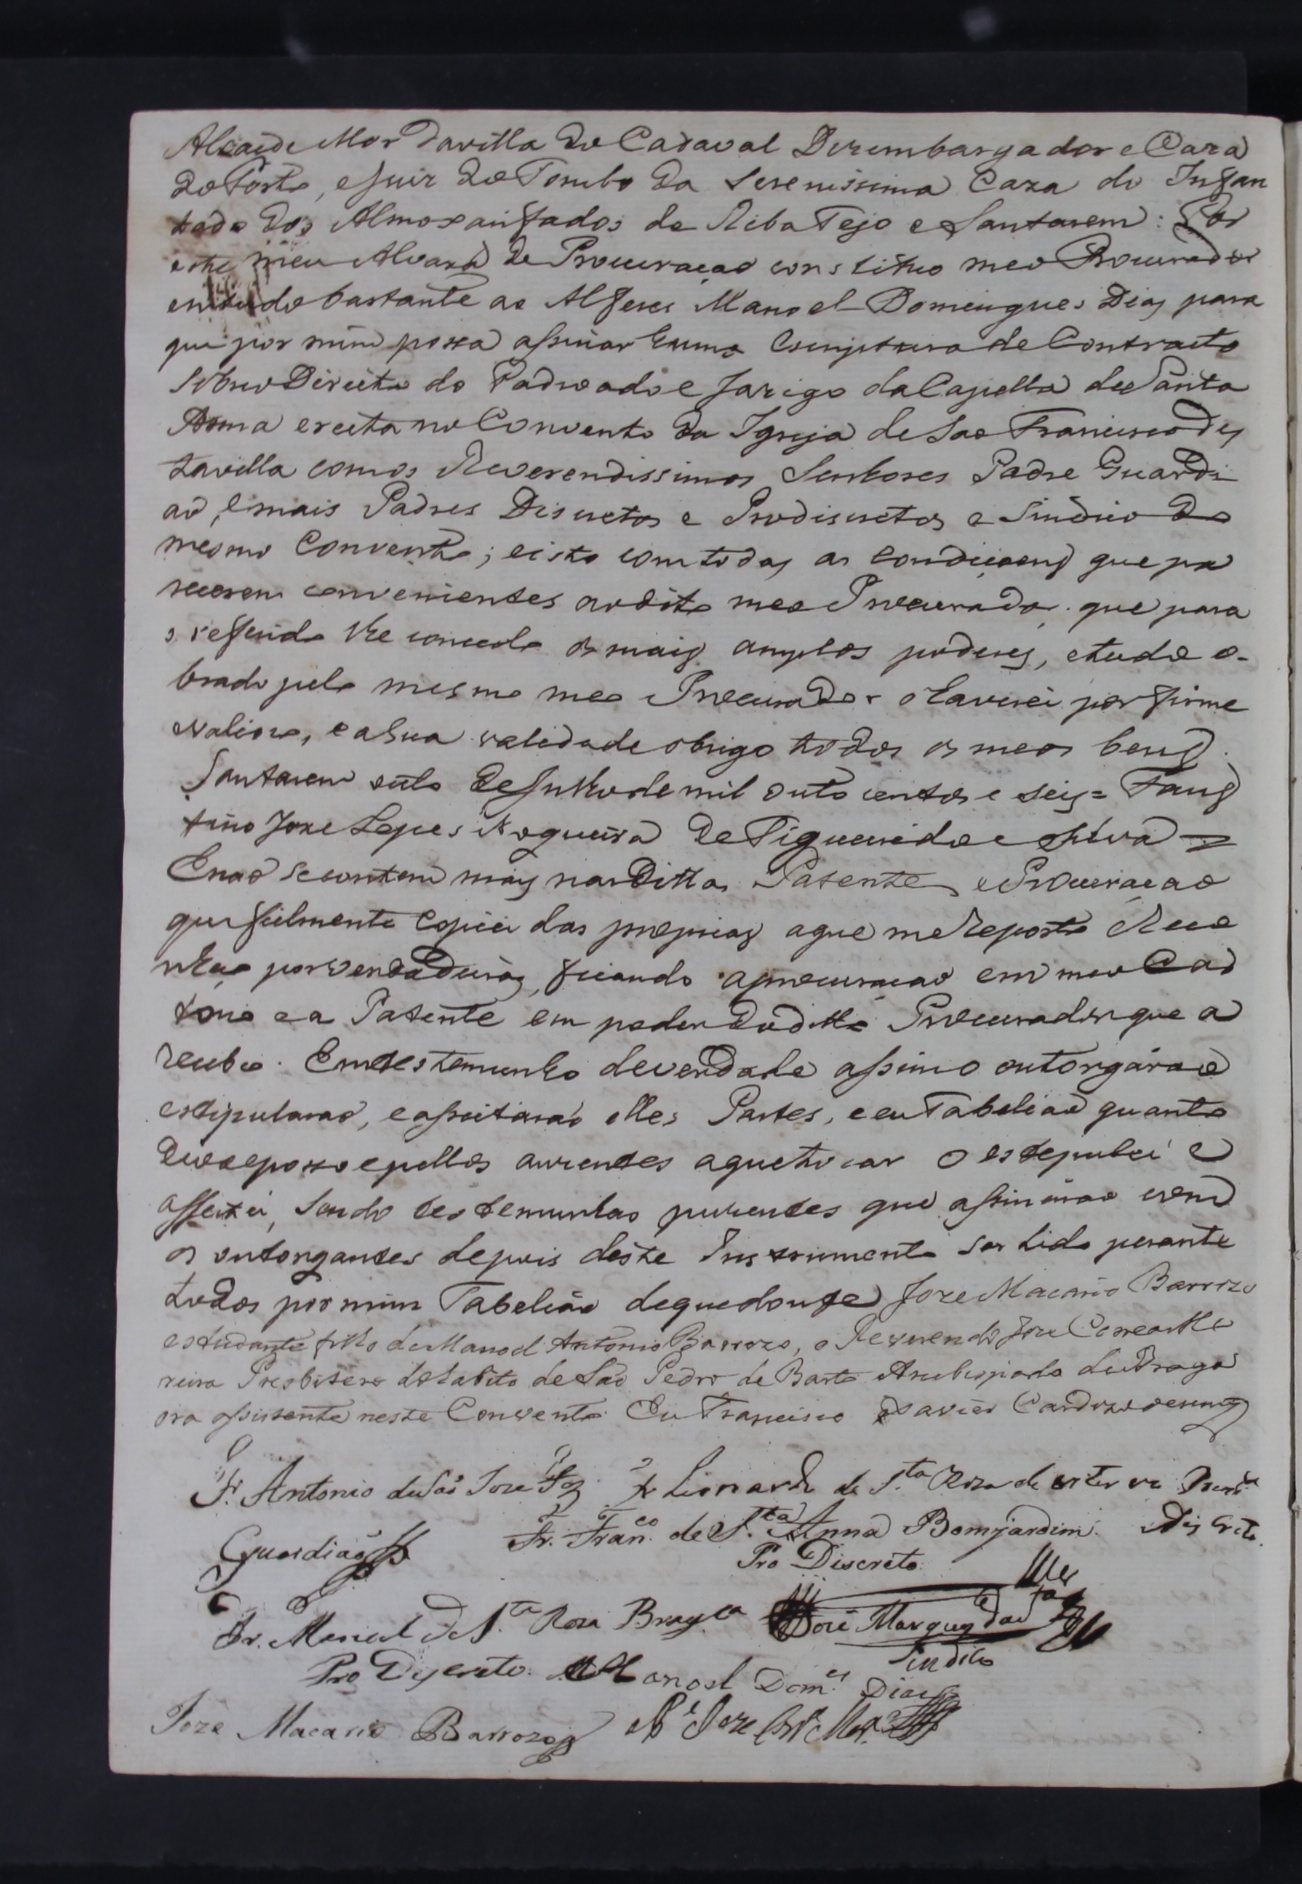 Alcaide Mor davilla do Cadaval Dezembargador e Caza
do Porto, e Juiz do Tombo da Serenissima Caza do Infan
tado dos Almoxarifados de Riba Tejo e Santarem: Por
este meu Alvará de Procuração constituo meo Procurador
em tudo bastante ao Alferes Manoel Domingues Dias para
que por mim possa assinar huma Escriptura de Contracto
sobre o Direito do Padroado e Jazigo da Capella de Santa
Anna erecta no Convento da Igreja de Sao Francisco des
ta villa com os Reverendissimos Senhores Padre Guardi
aõ, e mais Padres Discretos e Prodiscretos e Sindico do
mesmo Convento; e isto com todas as condiçoens que pa
recerem convenientes ao dito meo Procurador que para
o referido lhe concedo os mais amplos poderes, e tudo o
brado pelo mesmo meo Procurador o haverei por firme
e valiozo, e a sua validade obrigo todos os meos bens.
Santarem sete de Julho de mil outo centos e seis = Faus
tino Joze Lopes Nogueira de Figueiredo e Silva =
E naõ se contem mais nas Dittas Patente e Procuraçao
que fielmente copiei das proprias a que me Reporto Reco
nheço por verdadeiras, ficando a procuraçao em meo Car
torio e a Patente em poder do ditto Procurador que a
recebeo. Em testemunho de verdade assim o outorgáraõ
estipularaõ, e asseitaraõ elles Partes, e eu Tabeliaõ quanto
devo e posso e pellos auzentes a que tocar o estepulei e
asseitei, sendo testemunhas prezentes que assinaraõ com
os outorgantes depois deste Instrumento ser lido perante
todos por mim Tabeliaõ de que dou fe Joze Macario Barrozo
estudante filho de Manoel Antonio Barrozo, o Reverendo Joze Correa Mo
reira Presbitero do habito de Saõ Pedro de Basto Arcebispado de Braga
ora assistente neste Convento. Eu Francisco Xavier Cardozo
Fr. Antonio de Saõ Joze Fr. Lionardo de S.ta Roza de
Guardiaõ Fr. Fran.co de S.ta Anna Bomjardim Discreto.
Pro Discreto
Fr. Manoel de S.ta Roza Joze Marques da
Pro Discreto. Sindico
Manoel Dom.es Dias
Joze Macario Barrozo P.e Joze Corr.a Mor.a